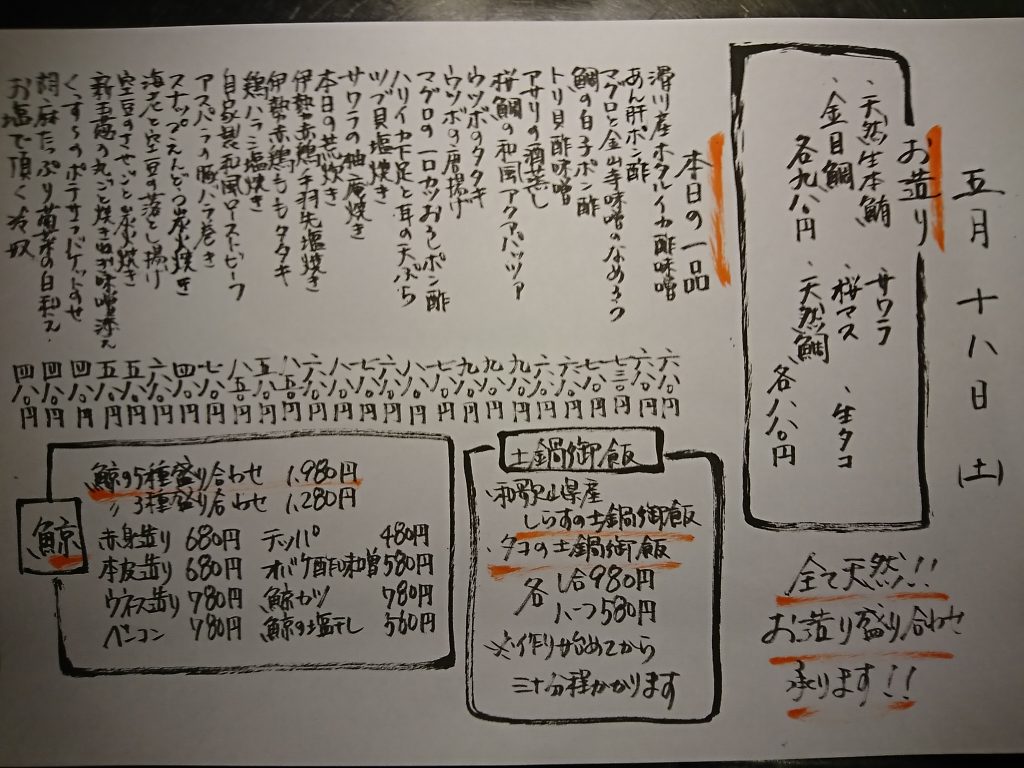 五月十八日(土)
お造り
・天然生本鮪 サワラ
・金目鯛 ・桜マス ・生タコ
各九八〇円 ・天然鯛 各八八〇円
全て天然!!
お造り盛り合わせ
承ります!!
本日の一品
滑川産ホタルイカ酢味噌 六八〇円
あん肝ポン酢 六八〇円
マグロと金山寺味噌のなめろう 七三〇円
鯛の白子ポン酢 八八〇円
トリ貝酢味噌 六八〇円
アサリの酒蒸し 六八〇円
桜鯛の和風アクアパッツァ 九八〇円
ウツボのタタキ 九八〇円
ウツボの唐揚げ 九八〇円
マグロの一口カツおろしポン酢 七八〇円
ハリイカ下足と耳の天ぷら 八八〇円
ツブ貝塩焼き 六八〇円
サワラの柚庵焼き 七八〇円
本日の荒炊き 八八〇円
伊勢赤鶏手羽先塩焼き 六八〇円
伊勢赤鶏ももタタキ 八五〇円
鶏ハラミ塩焼き 五八〇円
自家製和風ローストビーフ 八五〇円
アスパラの豚バラ巻き 七八〇円
スナップえんどう炭火焼き 四八〇円
海老と空豆の落とし揚げ 六八〇円
空豆のさやごと炭火焼き 五八〇円
新玉葱の丸ごと焼き 味噌添え 五八〇円
のポテサラバゲットのせ 四八〇円
胡麻たっぷり菊菜の白和え 四八〇円
お塩で頂く冷奴 四八〇円
土鍋御飯
・和歌山県産
しらすの土鍋御飯
・タコの土鍋御飯
各 1合980円
ハーフ580円
※作り始めてから
三十分程かかります
鯨
鯨の5種盛り合わせ 1.980円
〃 3種盛り合わせ 1.280円
赤身造り 680円 テッパ 480円
本皮造り 680円 オバケ酢味噌 580円
ウネス造り 780円 鯨カツ 780円
ベーコン 780円 鯨の塩干し 580円